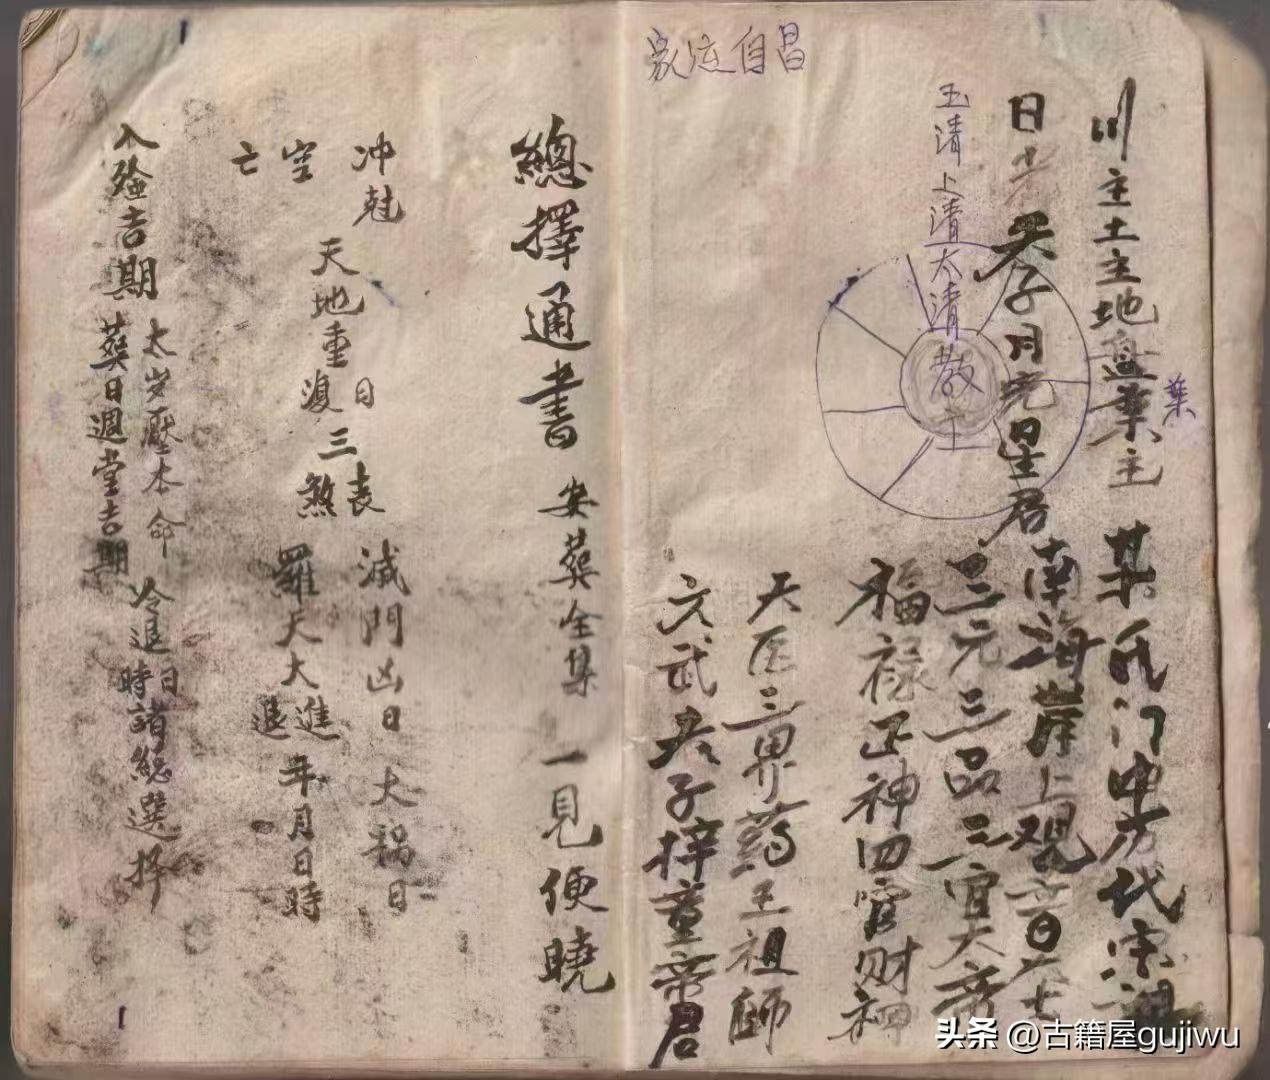 川主土主地盘業主
業
某氏门中历代宗祖
日光天子月宪星君
南海岸上观音大士
玉清上清太清教主
三元三品三官大帝
福禄正神四官财神
天医三界药王祖師
文武夫子梓童帝君
自昌
總擇通書
安葬全集
一見便曉
冲尅
空亡
天地重復日
三喪
煞
滅門凶日
大祸日
羅天大進退
年月日時
入殮吉期
太岁壓本命
葬日週堂吉期
冷退日時
諸総選择
头条 @古籍屋gujiwu